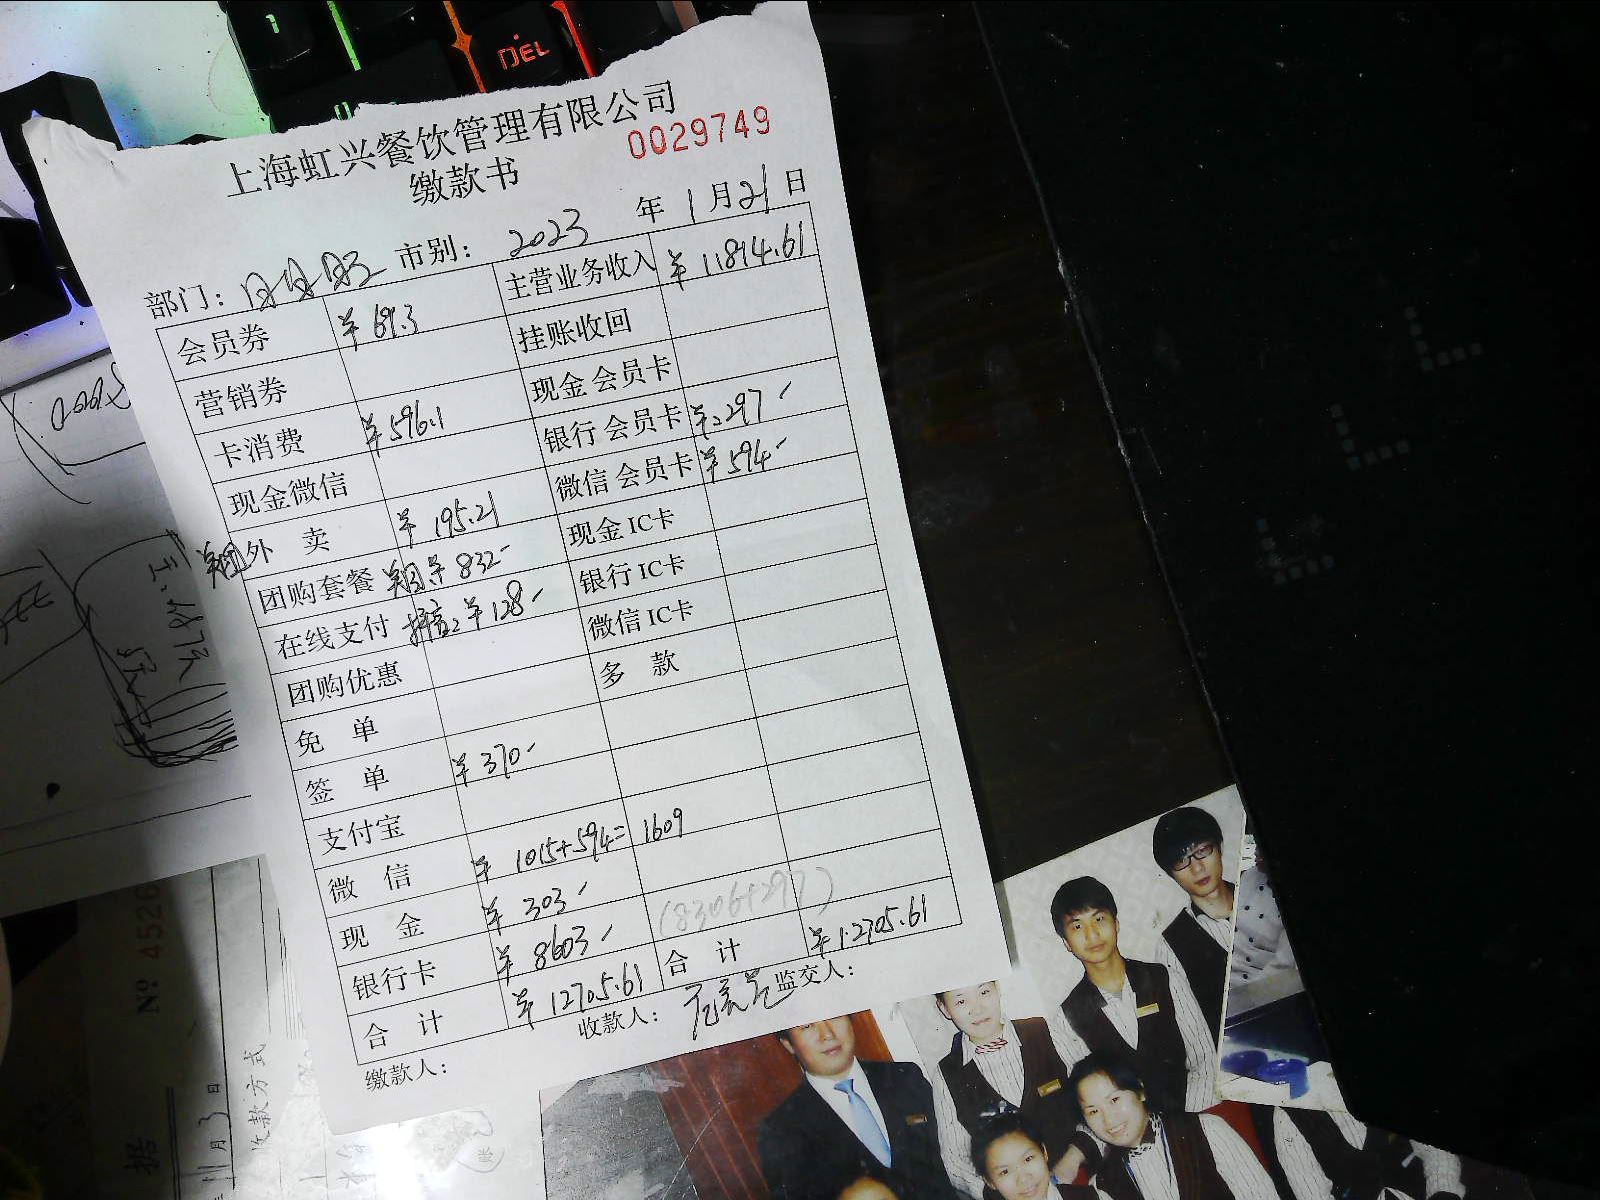 DEL
上海虹兴餐饮管理有限公司
0029749
缴款书
部门： 日月旺 市别： 2023 年 1 月 21 日
会员券 ¥ 69.3 主营业务收入 ¥ 11814.61
营销券 挂账收回
卡消费 ¥ 596.1 现金 会员卡
现金微信 银行 会员卡 ¥ 297 -
外 卖 ¥ 195.21 微信 会员卡 ¥ 594 -
团购套餐 ¥ 832 - 现金 IC卡
在线支付 抖音2 ¥ 128 - 银行 IC卡
团购优惠 微信 IC卡
免 单 多 款
签 单 ¥ 370 -
支付宝
微 信 ¥ 1015+594= 1609
现 金 ¥ 303 -
银行卡 ¥ 8603 - (8306+297)
合 计 ¥ 12705.61 合 计 ¥ 12705.61
缴款人： 收款人： 监交人：
№ 4526
据
11 月 3 日
收款方式